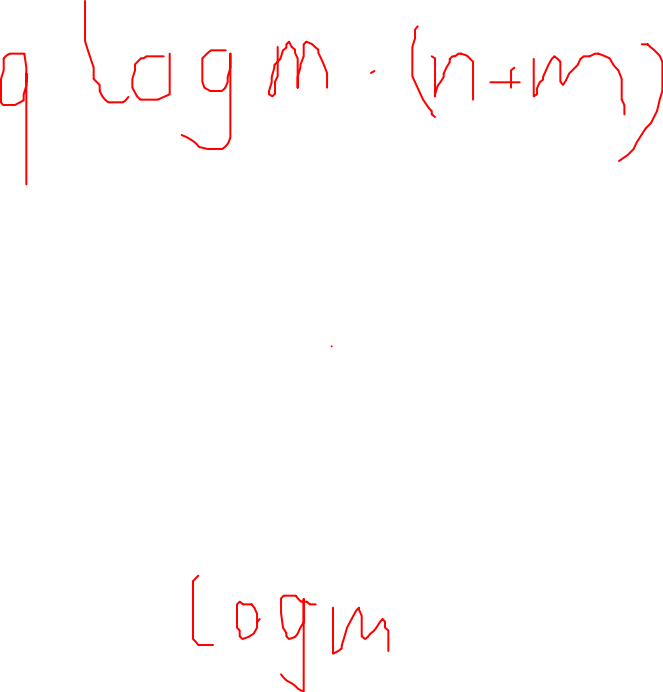 q log m · (n+m)
log m